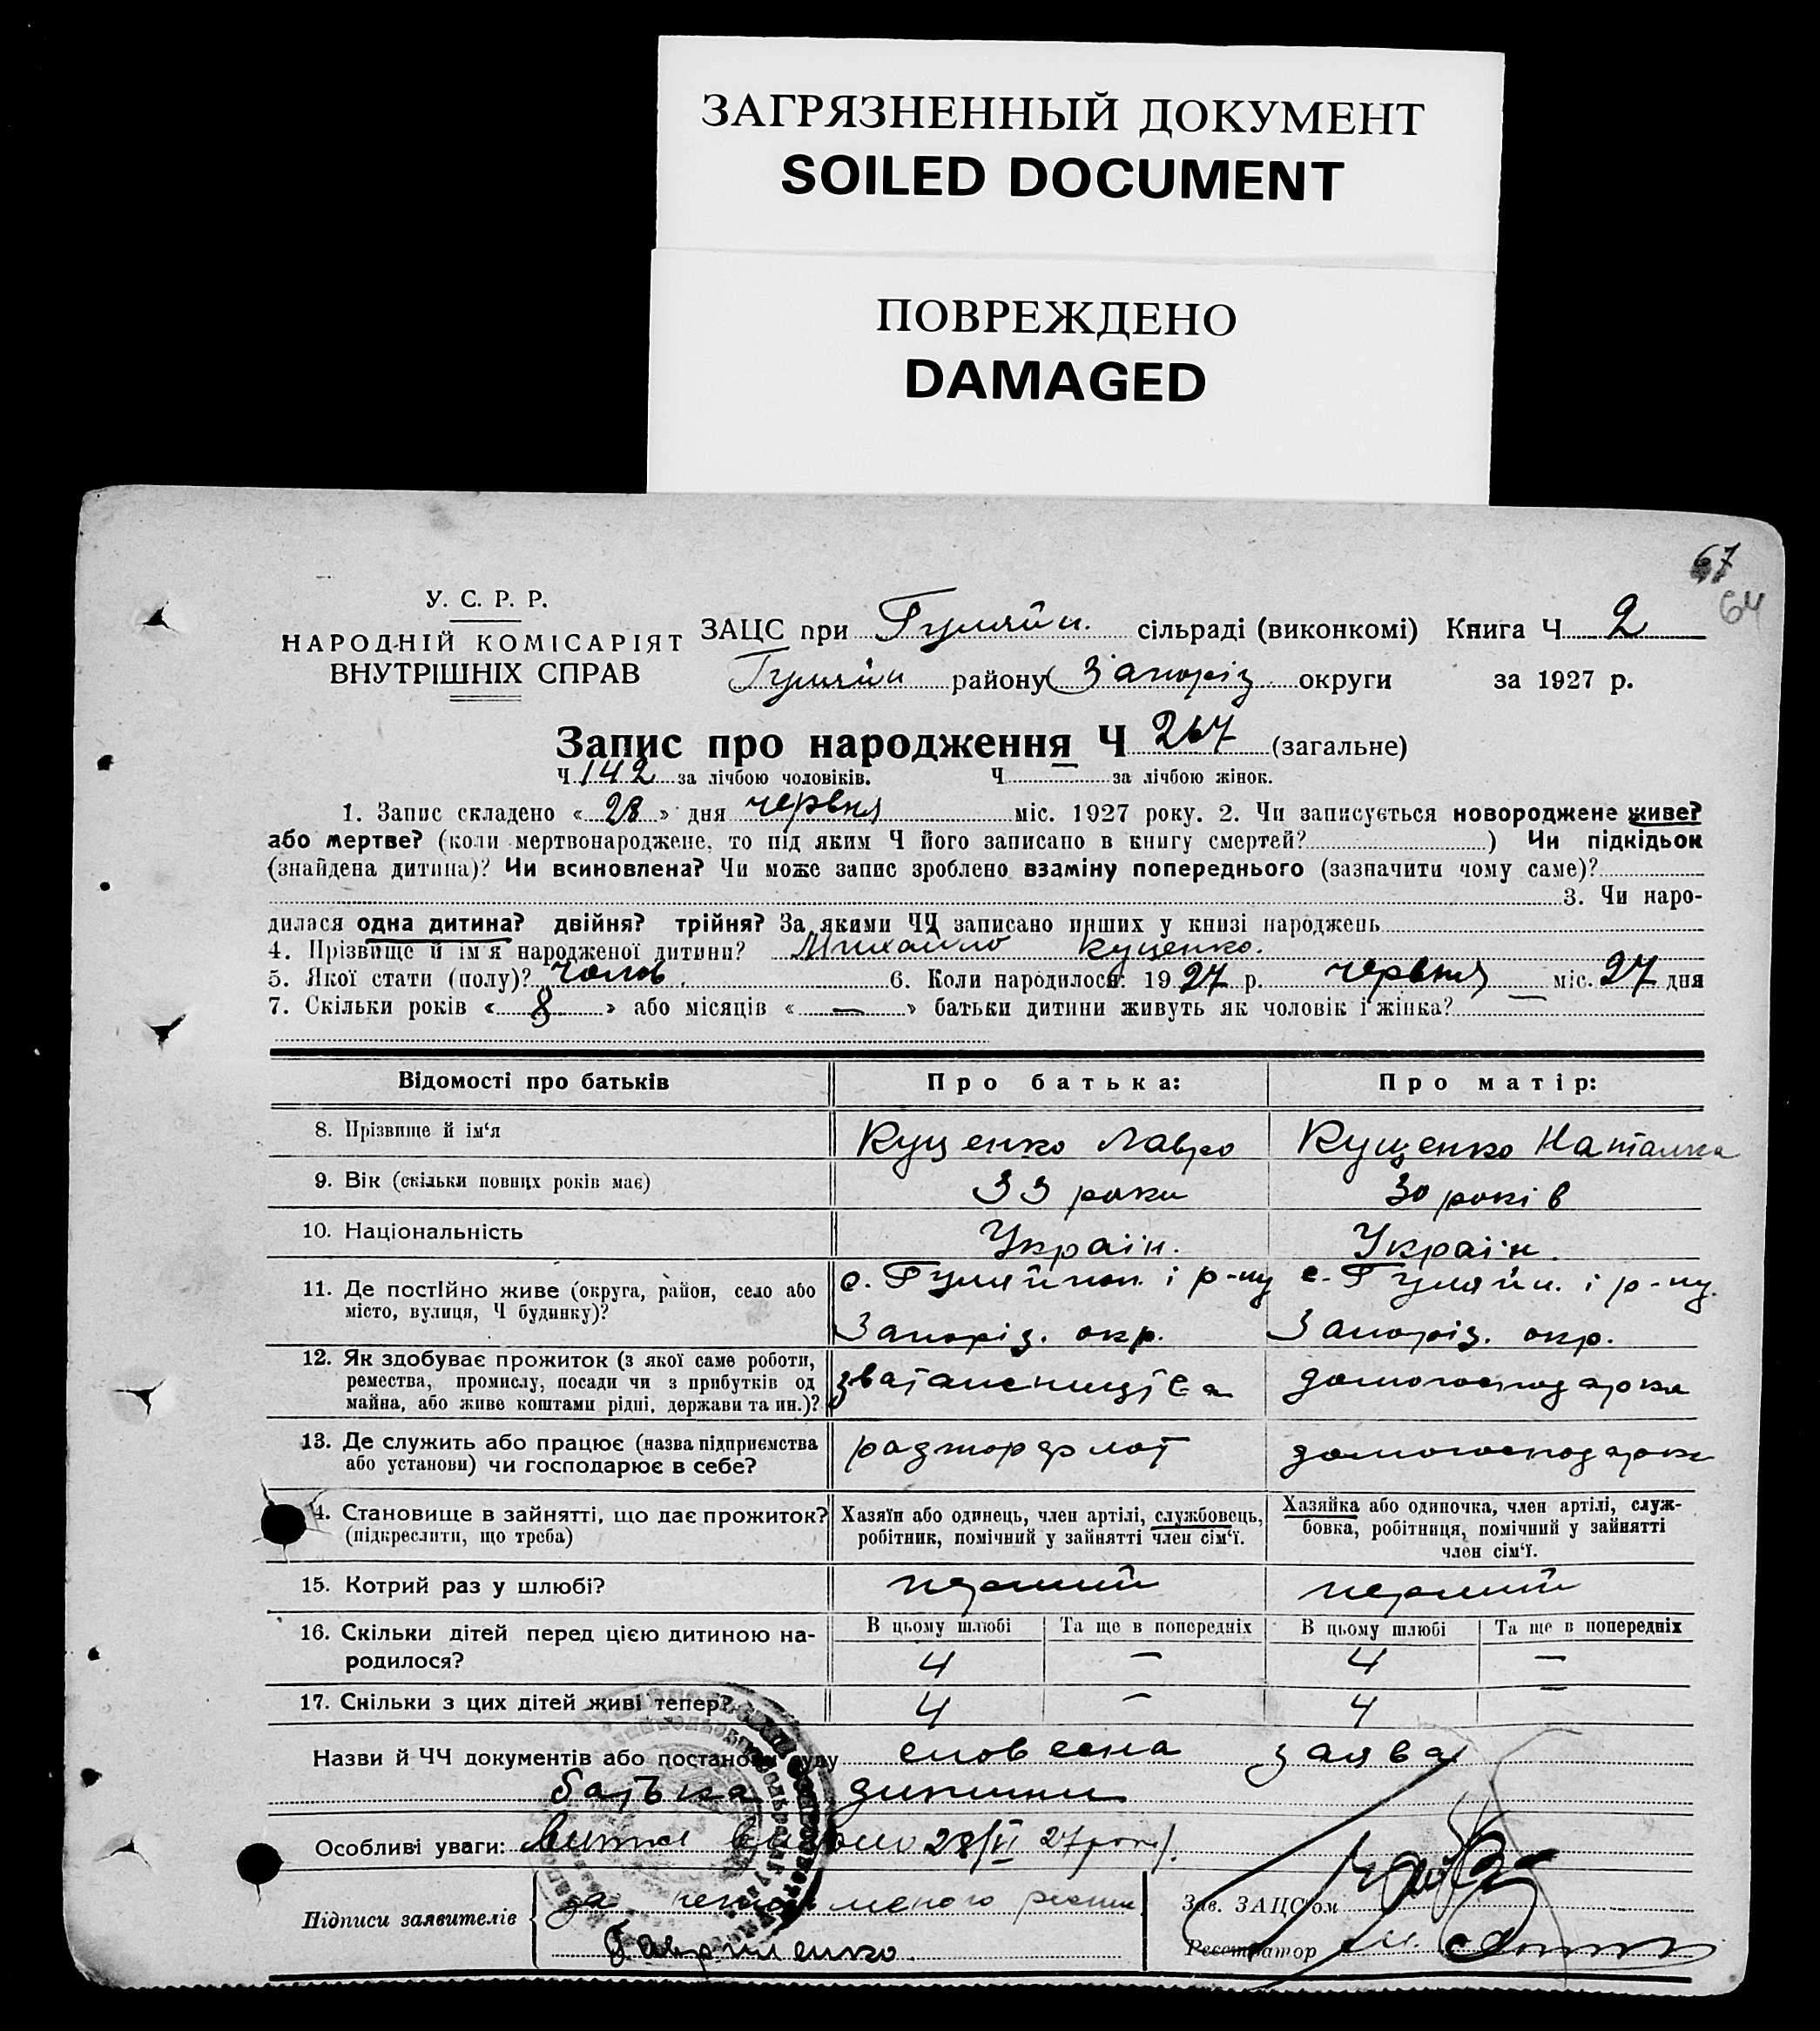 ЗАГРЯЗНЕННЫЙ ДОКУМЕНТ
SOILED DOCUMENT
ПОВРЕЖДЕНО
DAMAGED
67
64
У. С. Р. Р.
НАРОДНІЙ КОМІСАРІЯТ
ВНУТРІШНІХ СПРАВ
ЗАЦС при Гуляйп. сільраді (виконкомі) Книга Ч 2
Гуляйп району Запоріз округи за 1927 р.
Запис про народження Ч 267 (загальне)
Ч 142 за лічбою чоловіків. Ч — за лічбою жінок.
1. Запис складено « 28 » дня червня міс. 1927 року. 2. Чи записується новороджене живе?
або мертве? (коли мертвонароджене, то під яким Ч його записано в книгу смертей? ) Чи підкідьок
(знайдена дитина)? Чи всиновлена? Чи може запис зроблено взаміну попереднього (зазначити чому саме)?
3. Чи наро-
дилася одна дитина? двійня? трійня? За якими ЧЧ записано инших у книзі народжень
4. Прізвище й ім'я народженої дитини? Михайло Куценко.
5. Якої стати (полу)? чолов. 6. Коли народилося: 1927 р. червня міс. 27 дня
7. Скільки років « 8 » або місяців « — » батьки дитини живуть як чоловік і жінка? —
Відомості про батьків Про батька: Про матір:
8. Прізвище й ім'я Куценко Лавро Куценко Наталка
9. Вік (скільки повних років має) 33 роки 30 років
10. Національність Україн. Україн.
11. Де постійно живе (округа, район, село або с. Гуляйпол. і р-ну с. Гуляйп. і р-ну.
місто, вулиця, Ч будинку)? Запоріз. окр. Запоріз. окр.
12. Як здобуває прожиток (з якої саме роботи,
ремества, промислу, посади чи з прибутків од домогосподарка
майна, або живе коштами рідні, держави та ин.)?
13. Де служить або працює (назва підприємства домогосподарка
або установи) чи господарює в себе?
14. Становище в зайнятті, що дає прожиток? Хазяїн або одинець, член артілі, службовець, Хазяйка або одиночка, член артілі, служ-
(підкреслити, що треба) робітник, помічний у зайнятті член сім'ї. бовка, робітниця, помічний у зайнятті
член сім'ї.
15. Котрий раз у шлюбі? перший перший
16. Скільки дітей перед цією дитиною на- В цьому шлюбі Та ще в попередніх В цьому шлюбі Та ще в попередніх
родилося? 4 — 4 —
17. Скільки з цих дітей живі тепер? 4 — 4 —
Назви й ЧЧ документів або постанови суду словесна заява
батька дитини
Особливі уваги: 28/VI 27 року.
Підписи заявителів за
Гавриленко.
Зав. ЗАЦС'ом
Реєстратор